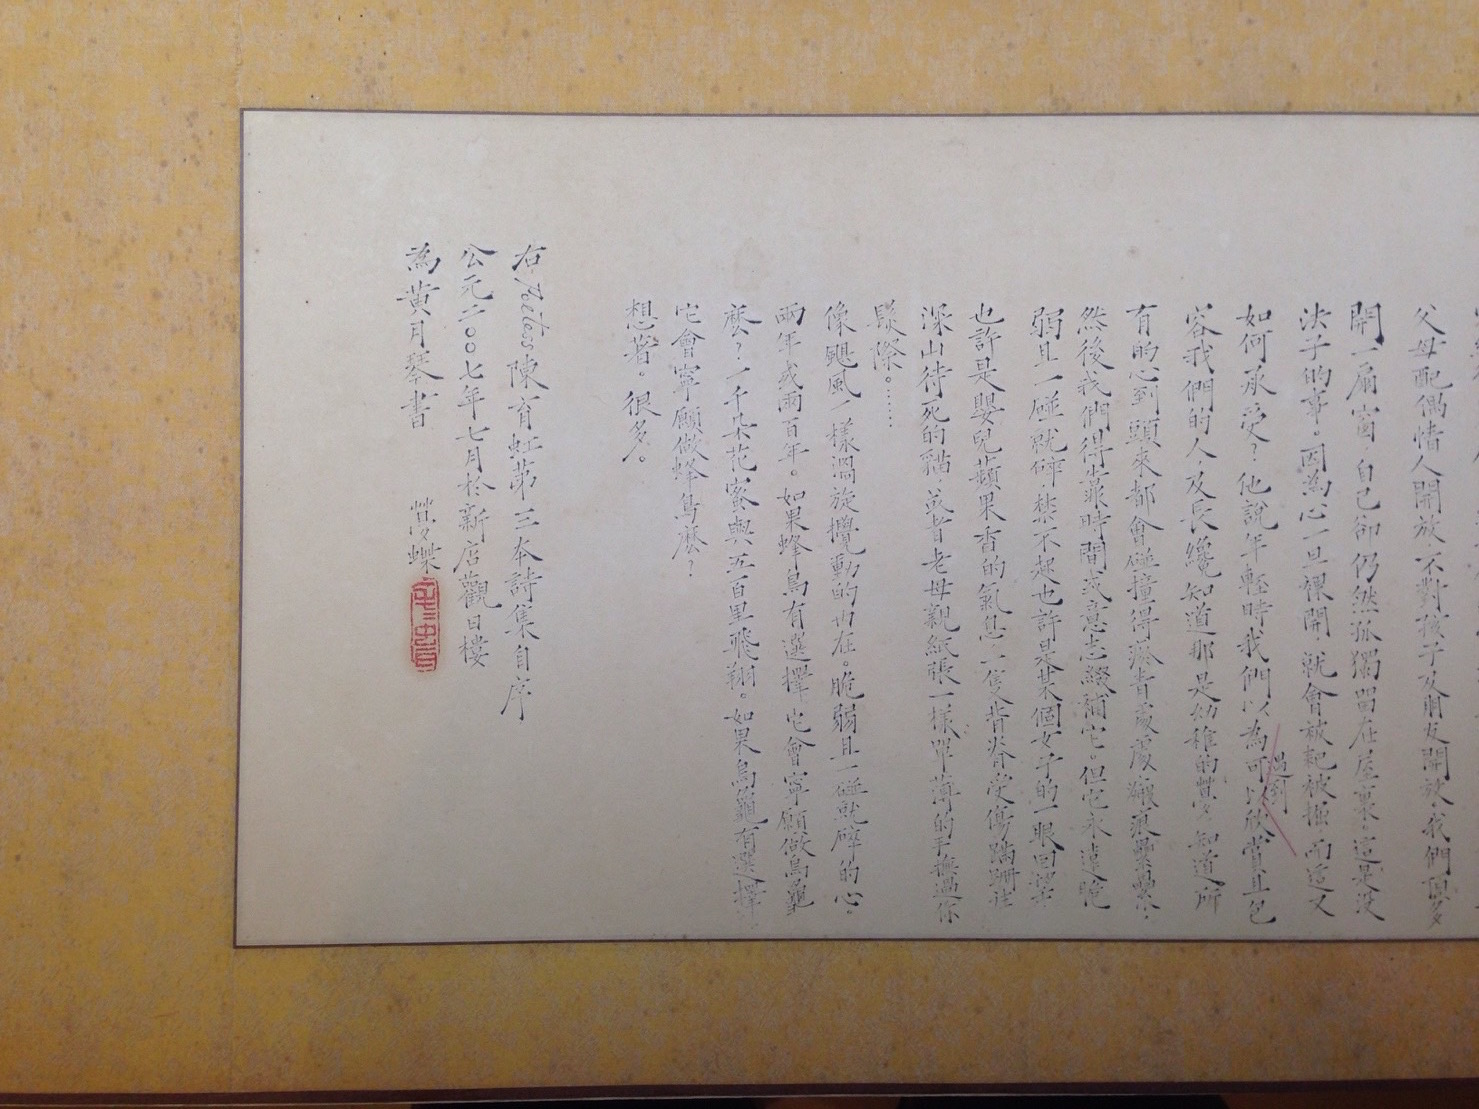 父母配偶情人開放，不對孩子及朋友開放。我們頂多
開一扇窗，自己卻仍然孤獨留在屋裏。這是沒
法子的事。因為心一旦裸開，就會被耙被掘，而這又
如何承受？他說年輕時我們以為可以欣賞且包
遇到
容我們的人，及長纔知道那是幼稚的夢，知道所
有的心到頭來都會碰撞得瘀青處處瘢痕纍纍，
然後我們得靠時間或意志綴補它。但它永遠脆
弱且一碰就碎，禁不起也許是某個女子的一眼回望
也許是嬰兒蘋果香的氣息，一隻背脊受傷蹣跚往
深山待死的貓，或者老母親紙張一樣單薄的手撫過你
髮際。……
像颶風一樣渦旋攪動的內在。脆弱且一碰就碎的心。
兩年或兩百年。如果蜂鳥有選擇，它會寧願做烏龜
麼？一千朵花蜜與五百里飛翔。如果烏龜有選擇
它會寧願做蜂鳥麼？
想著。很多。
右 陳育虹第三本詩集自序
公元二〇〇七年七月於新店觀日樓
為黃月琴書 夢蝶